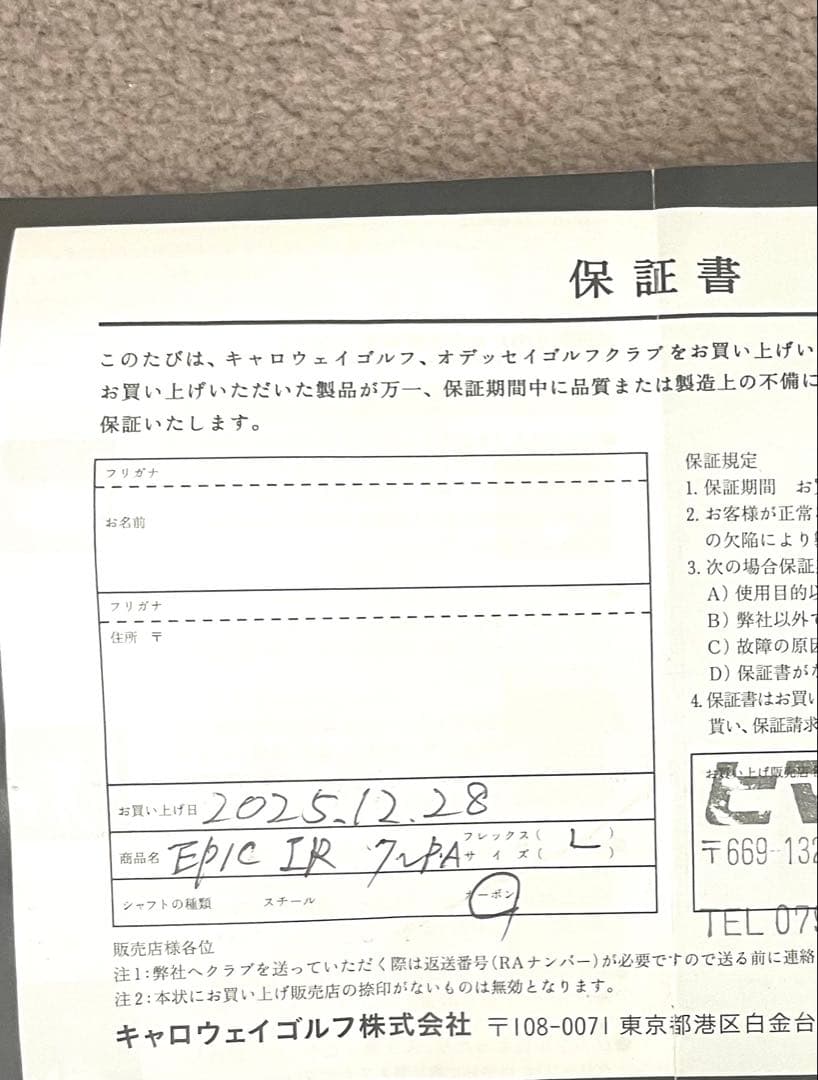 保証書
このたびは、キャロウェイゴルフ、オデッセイゴルフクラブをお買い上げい
お買い上げいただいた製品が万一、保証期間中に品質または製造上の不備に
保証いたします。
フリガナ
お名前
フリガナ
住所 〒
お買い上げ日 2025.12.28
商品名 EPIC IR 7~P.A フレックス( L )
サイズ( )
シャフトの種類 スチール カーボン
保証規定
1. 保証期間 お買
2. お客様が正常
の欠陥により
3. 次の場合保証
A) 使用目的以
B) 弊社以外で
C) 故障の原因
D) 保証書がな
4. 保証書はお買い
貰い、保証請求
お買い上げ販売店
〒669-132
TEL 079
販売店様各位
注1:弊社へクラブを送っていただく際は返送番号(RAナンバー)が必要ですので送る前に連絡
注2:本状にお買い上げ販売店の捺印がないものは無効となります。
キャロウェイゴルフ株式会社 〒108-0071 東京都港区白金台